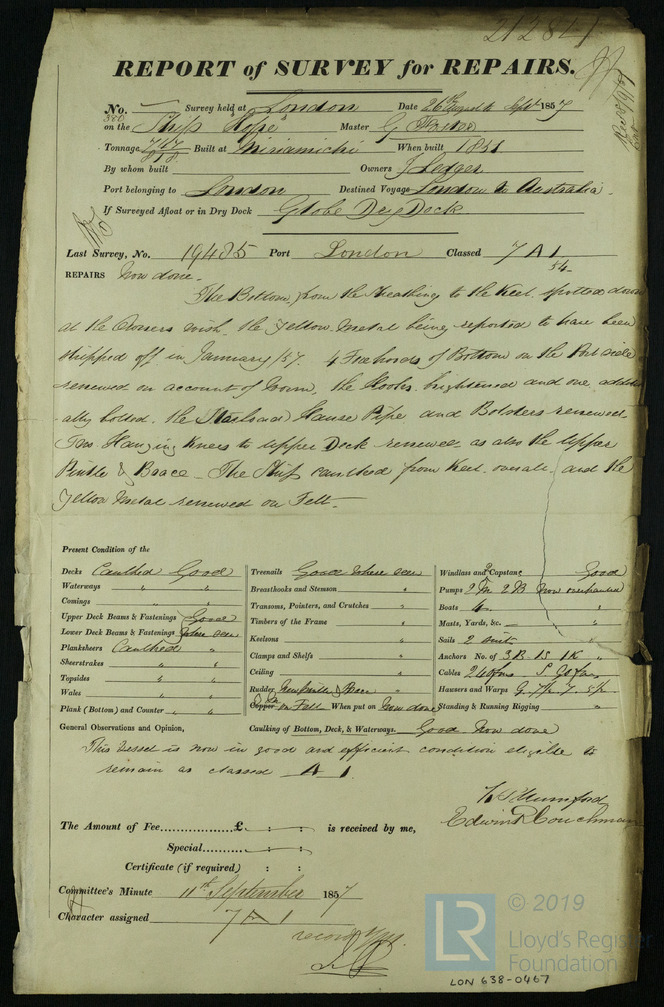 21284
REPORT of SURVEY for REPAIRS.
No. — Survey held at London Date 26th August to Sept 1857
380
on the Ship "Hope" Master G
Tonnage 747/818 Built at Miriamichi When built 1851
By whom built Owners J Ledger
Port belonging to London Destined Voyage London to Australia
If Surveyed Afloat or in Dry Dock Globe Dry Dock
Last Survey, No. 19485 Port London Classed 7 A 1
54
REPAIRS Now done.
The Bottom from the Sheathing to the Keel spotted down
at the Owners wish, the Yellow Metal being reported to have been
stripped off in January /57. 4 Strehoods of Bottom on the Port side
renewed on account of Worm, the Hooks brightened and one addition-
ally bolted. the Hause Pipe and Bolsters renewed.
Two Hanging Knees to Upper Deck renewed, as also the Upper
Pintle & Brace — The Ship caulked from Keel overall and the
Yellow Metal renewed on Felt —
Present Condition of the
Decks Caulked Good
Waterways " "
Comings " "
Upper Deck Beams & Fastenings Good
Lower Deck Beams & Fastenings where seen
Planksheers Caulked "
Sheerstrakes " "
Topsides " "
Wales " "
Plank (Bottom) and Counter " "
Treenails Good where seen
Breasthooks and Stemson "
Transoms, Pointers, and Crutches "
Timbers of the Frame "
Keelsons "
Clamps and Shelfs "
Ceiling "
Rudder New Pintle & Brace "
Copper on Felt When put on Now done
Caulking of Bottom, Deck, & Waterways. Good Now done
Windlass and Capstan Good
Pumps 2 M 2 B Now overhauled
Boats 4 "
Masts, Yards, &c. — "
Sails 2 suits "
Anchors No. of 3 B. 1 S 1 K "
Cables 240 fms S
Hausers and Warps "
Standing & Running Rigging "
General Observations and Opinion,
This vessel is now in good and efficient condition eligible to
remain as classed A 1.
Mumford
Edwin R Couchman
The Amount of Fee............£ : : is received by me,
Special............ : :
Certificate (if required) : :
Committee's Minute 11th September 1857
Character assigned 7 A 1
© 2019
LR
Lloyd's Register
Foundation
LON 638-0467